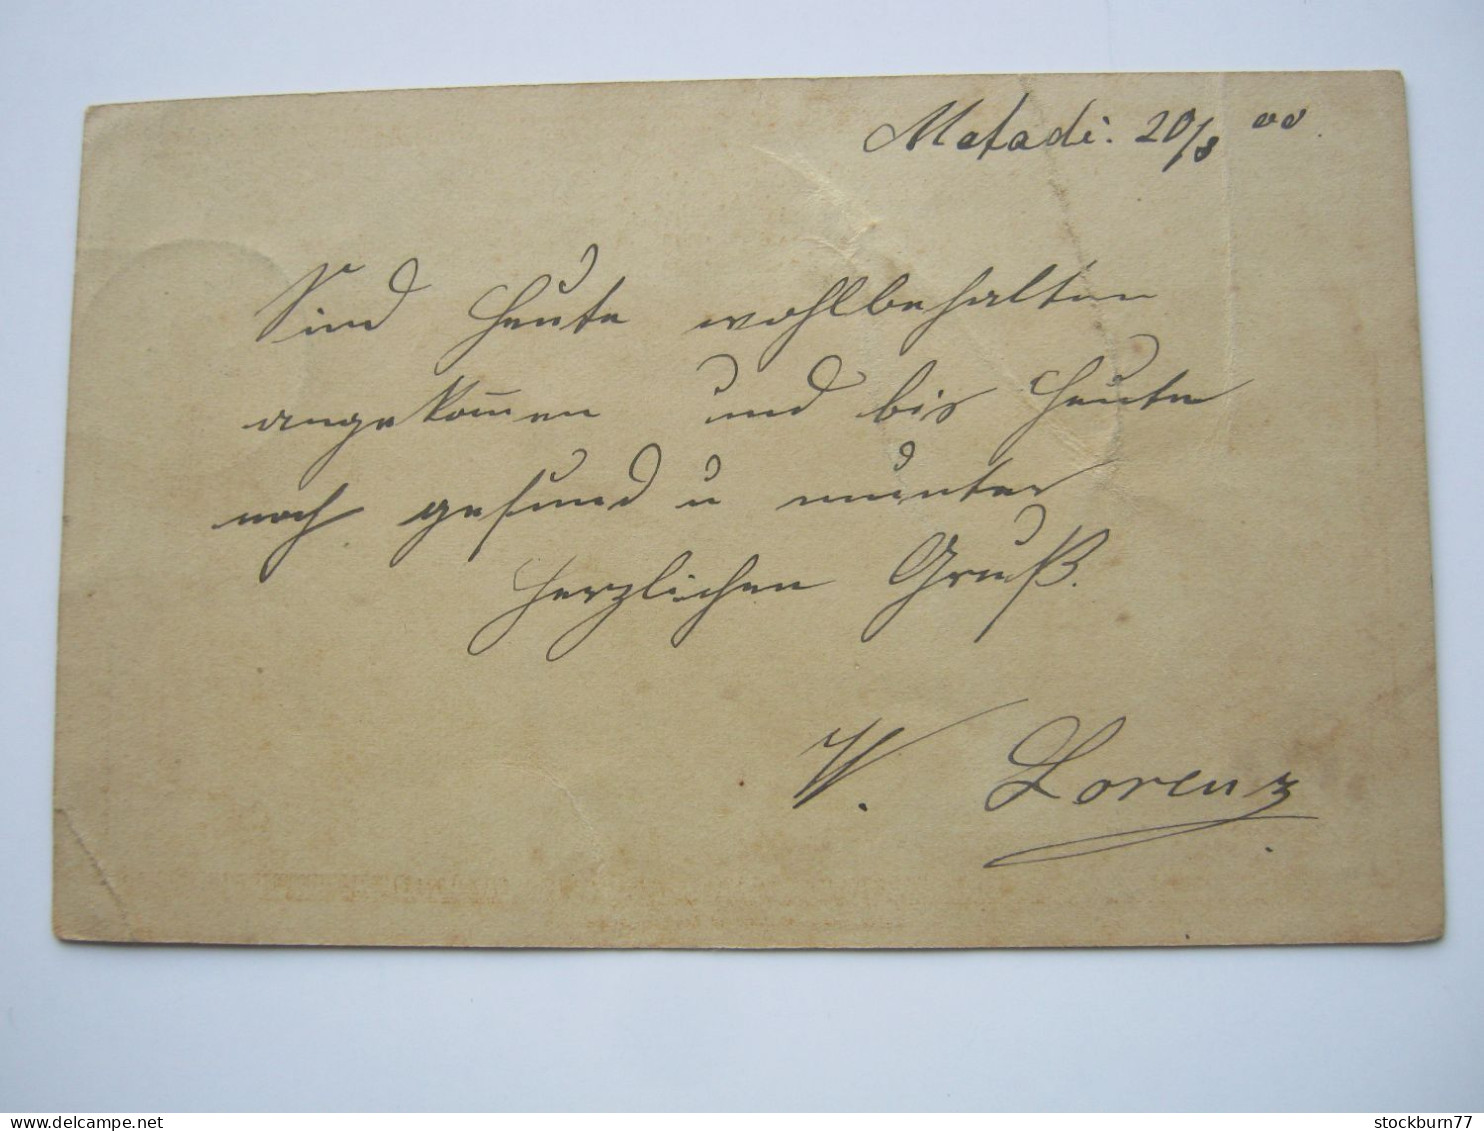 Matadi. 20/8 00.
Sind heute wohlbehalten
angekom̄en und bis heute
noch gesund u munter
Herzlichen Gruß.
W. Lorenz
stockburn77